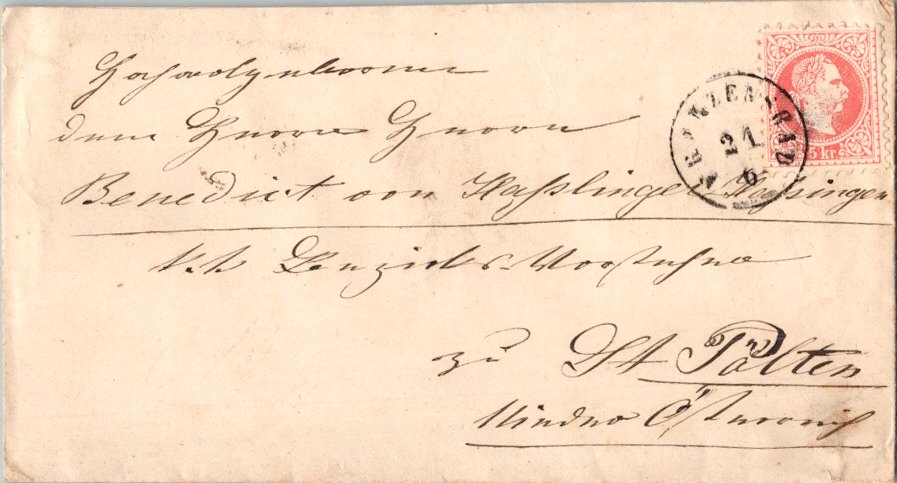 Hochwolgeborne
dem Herrn Herrn
Benedict von Haßlinger Hassingen
k. k. Bezirks-Vorsteher
zu St Pölten
Nieder Österreich
FRANZENSBAD
21
6
5 kr